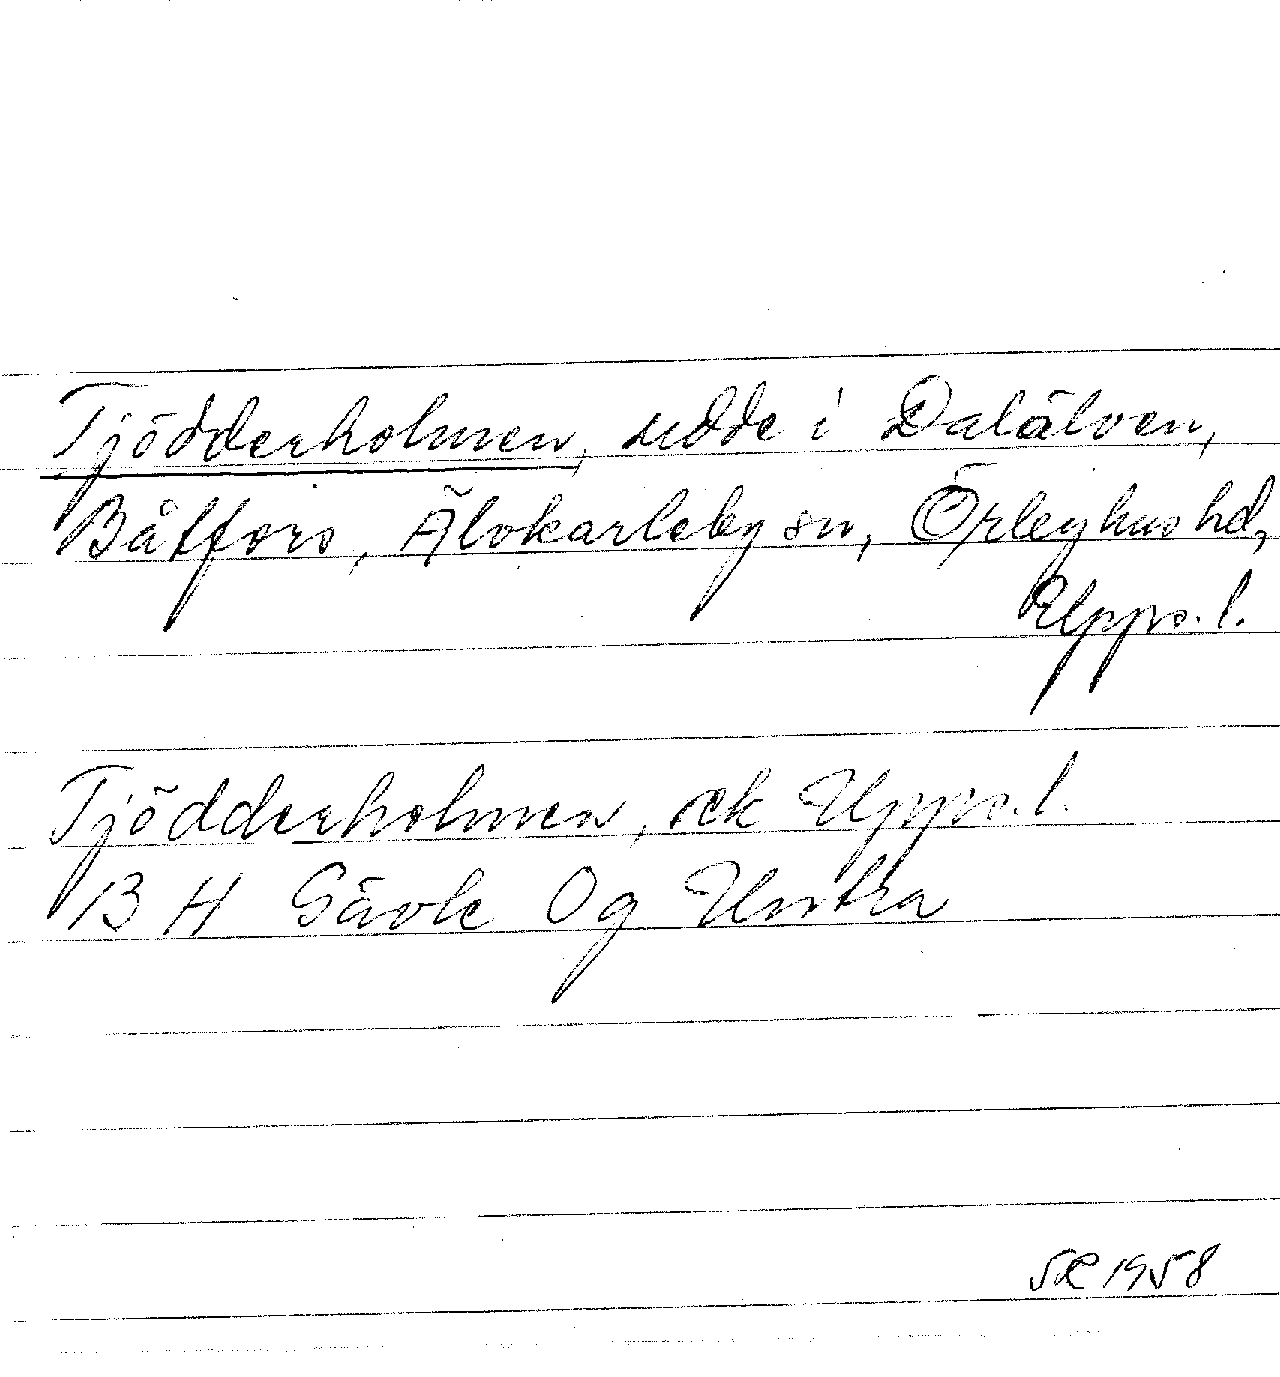 Tjödderholmen, udde i Dalälven,
Båtfors, Älvkarleby sn, Örbyhus hd,
Upps. l.
Tjödderholmen, ek Upps. l.
13 H Gävle Og Untra
SR 1958